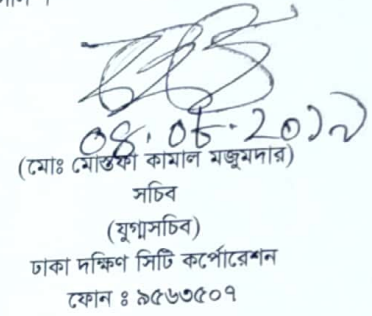 (মোঃ মোস্তফা কামাল মজুমদার)
সচিব
(যুগ্মসচিব)
ঢাকা দক্ষিণ সিটি কর্পোরেশন
ফোন ঃ ৯৫৬৩৫০৭